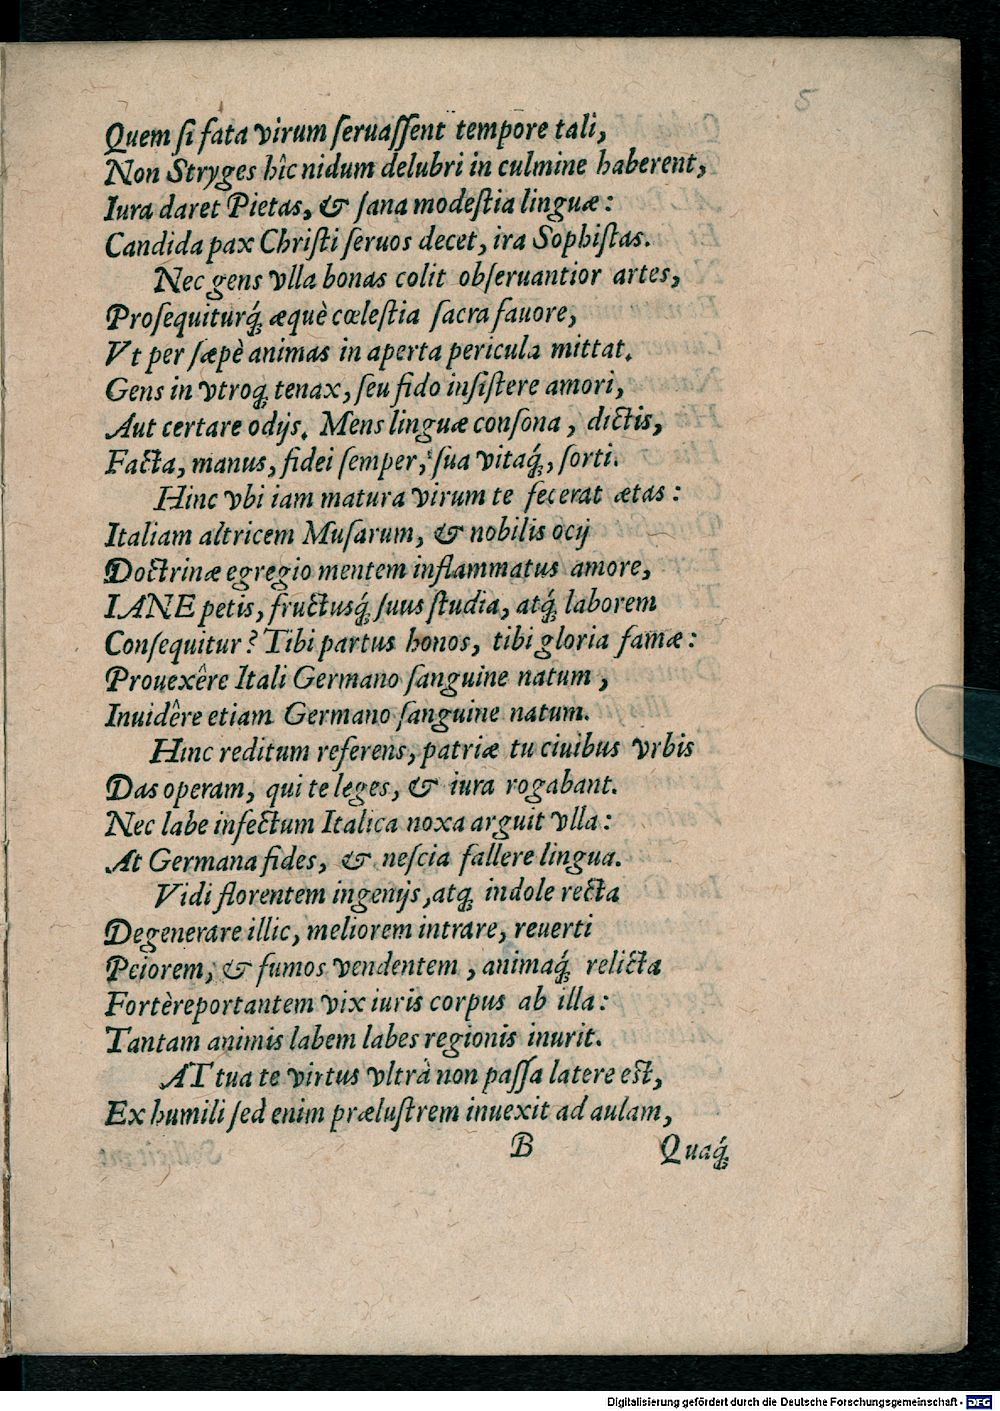 5
Quem ſi fata virum ſeruaſſent tempore tali,
Non Stryges hîc nidum delubri in culmine haberent,
Iura daret Pietas, & ſana modeſtia linguæ:
Candida pax Chriſti ſeruos decet, ira Sophiſtas.
Nec gens vlla bonas colit obſeruantior artes,
Proſequiturq́; æquè cœleſtia ſacra fauore,
Vt per ſæpè animas in aperta pericula mittat.
Gens in vtroq; tenax, ſeu fido inſiſtere amori,
Aut certare odijs. Mens linguæ conſona, dictis,
Facta, manus, fidei ſemper, ſua vitaq́;, ſorti.
Hinc vbi iam matura virum te fecerat ætas:
Italiam altricem Muſarum, & nobilis ocij
Doctrinæ egregio mentem inflammatus amore,
IANE petis, fructusq́; ſuus ſtudia, atq́; laborem
Conſequitur? Tibi partus honos, tibi gloria famæ:
Prouexêre Itali Germano ſanguine natum,
Inuidêre etiam Germano ſanguine natum.
Hinc reditum referens, patriæ tu ciuibus vrbis
Das operam, qui te leges, & iura rogabant.
Nec labe infectum Italica noxa arguit vlla:
At Germana fides, & neſcia fallere lingua.
Vidi florentem ingenijs, atq; indole recta
Degenerare illic, meliorem intrare, reuerti
Peiorem, & fumos vendentem, animaq́; relicta
Fortè reportantem vix iuris corpus ab illa:
Tantam animis labem labes regionis inurit.
AT tua te virtus vltrà non paſſa latere eſt,
Ex humili ſed enim præluſtrem inuexit ad aulam,
B Quaq́;
Digitalisierung gefördert durch die Deutsche Forschungsgemeinschaft - DFG